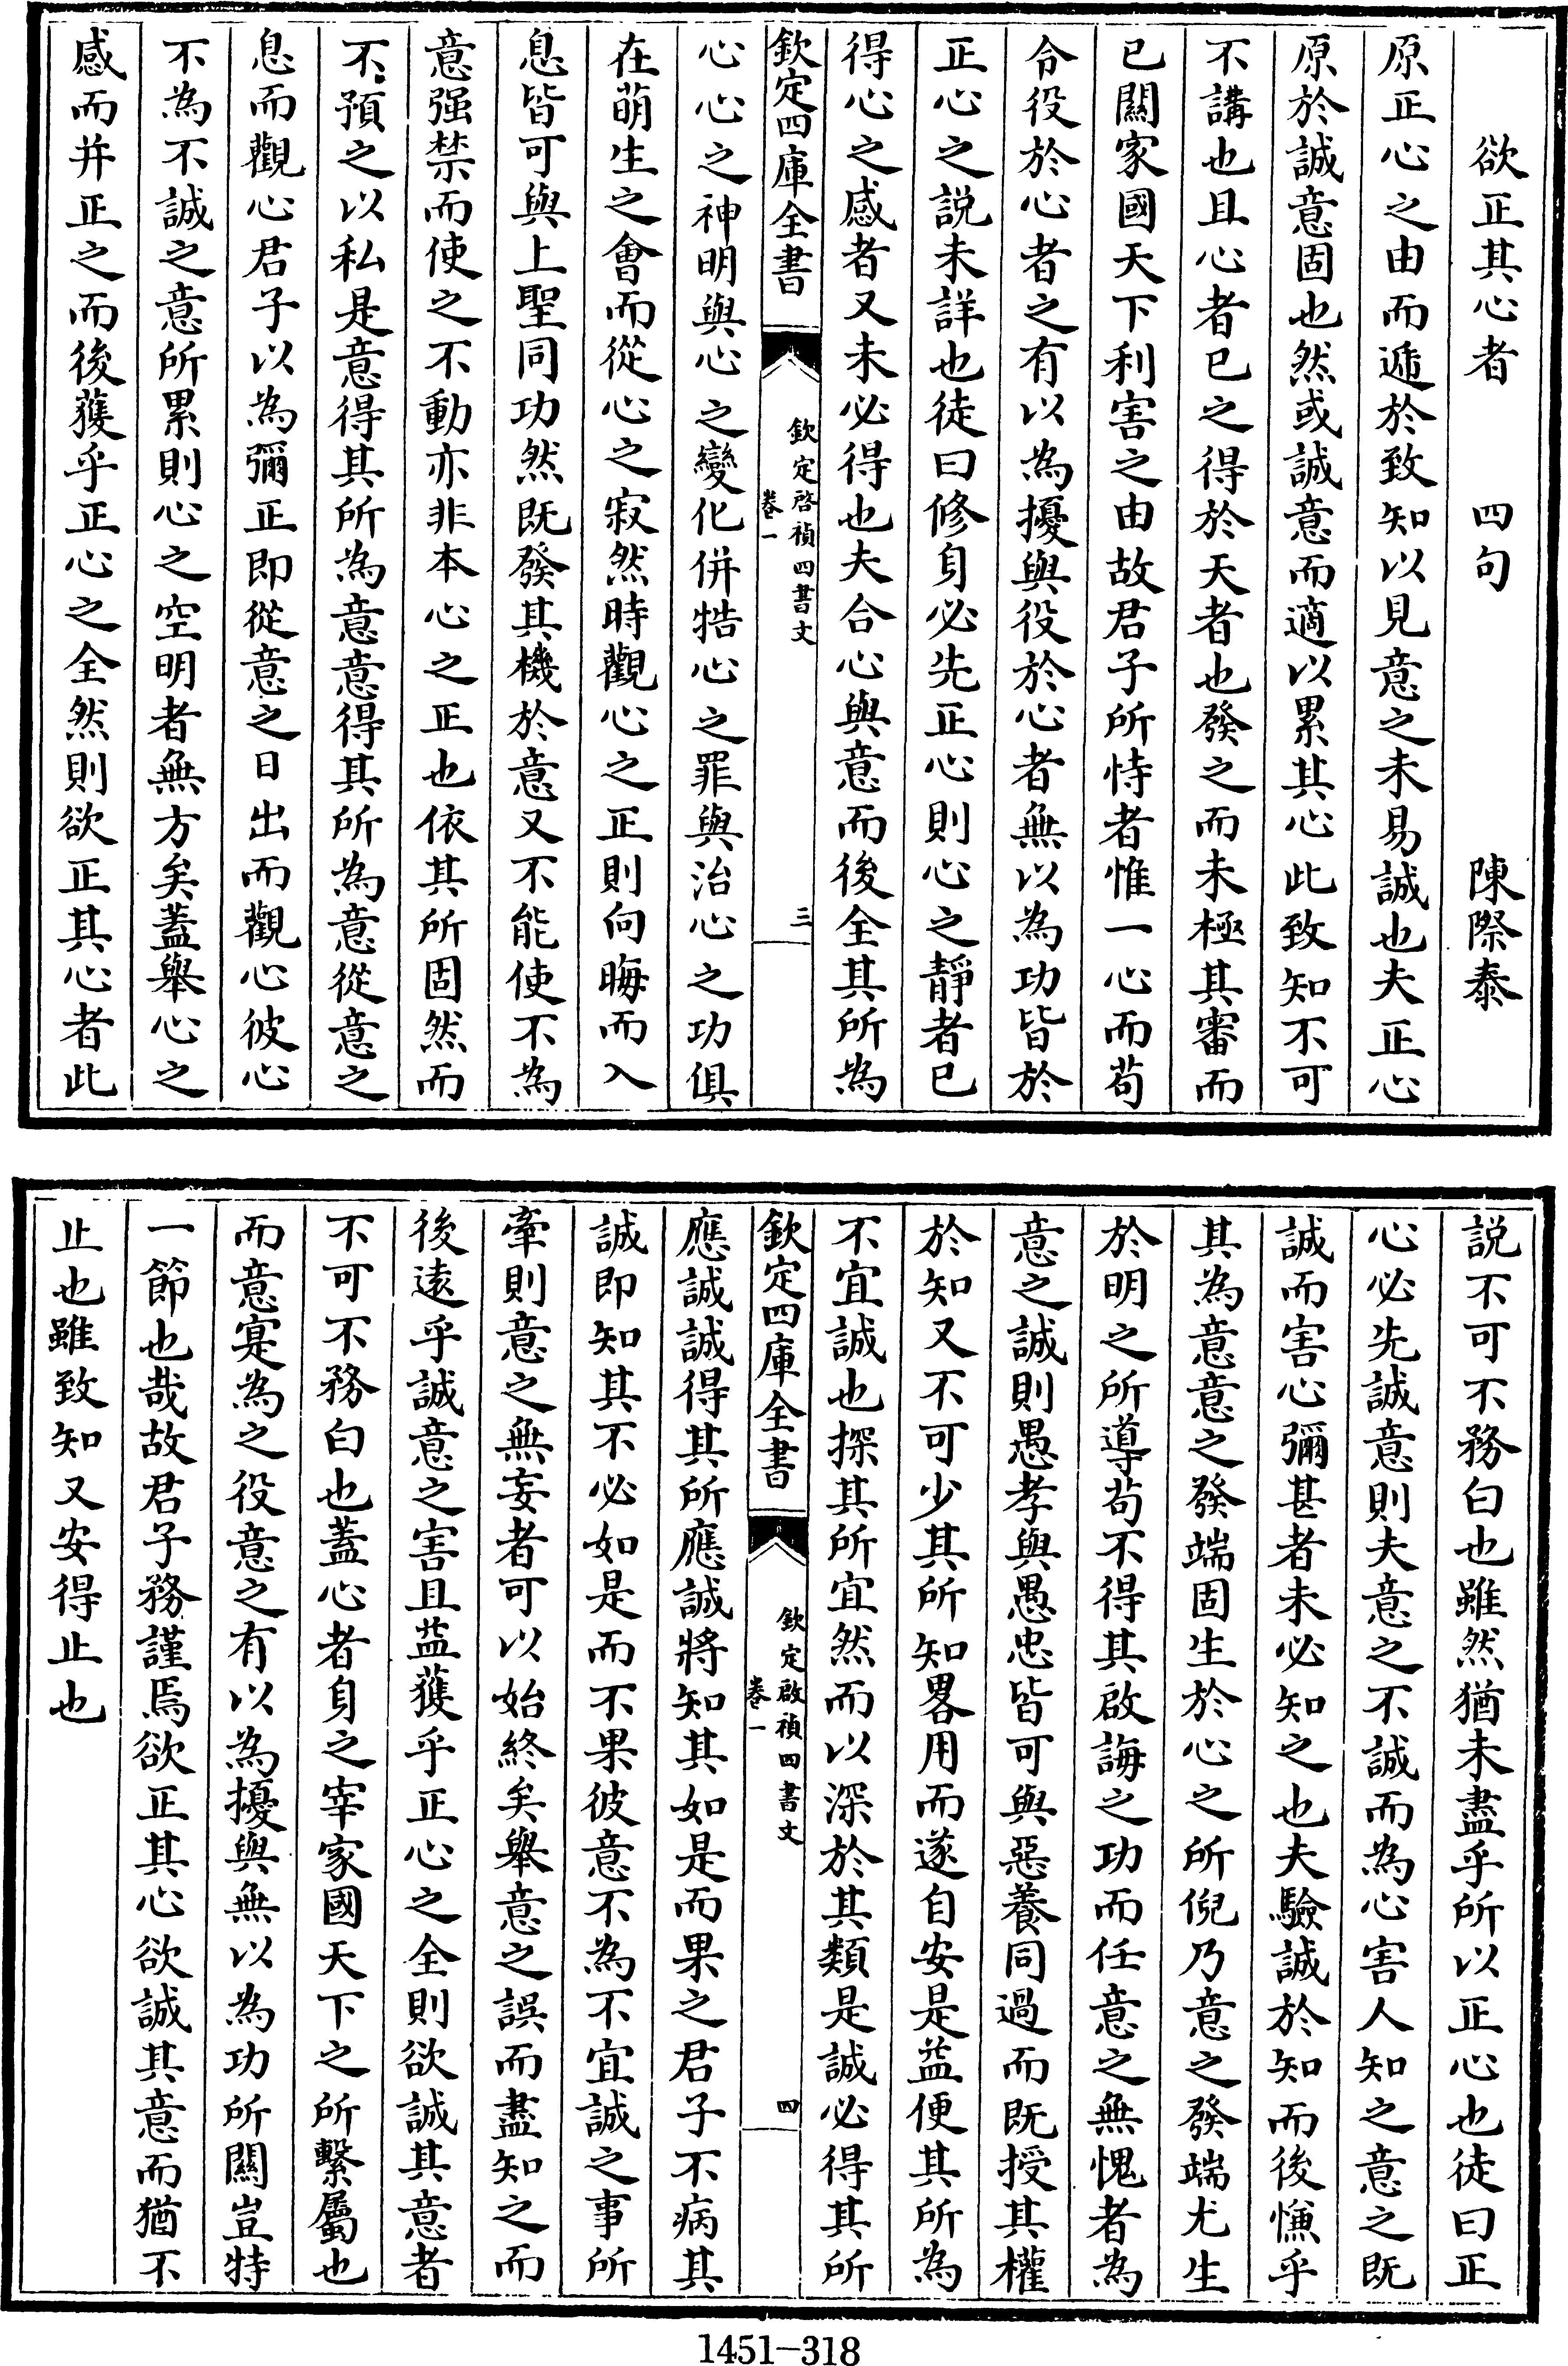 欲正其心者 四句 陳際泰
原正心之由而遞於致知以見意之未易誠也夫正心
原於誠意固也然或誠意而適以累其心此致知不可
不講也且心者已之得於天者也發之而未極其審而
已關家國天下利害之由故君子所恃者惟一心而苟
令役於心者之有以為擾與役於心者無以為功皆於
正心之説未詳也徒曰修身必先正心則心之靜者已
得心之感者又未必得也夫合心與意而後全其所為
欽定四庫全書
欽定啓禎四書文
卷一
三
心心之神明與心之變化併牿心之罪與治心之功俱
在萌生之會而從心之寂然時觀心之正則向晦而入
息皆可與上聖同功然既發其機於意又不能使不為
意强禁而使之不動亦非本心之正也依其所固然而
不預之以私是意得其所為意意得其所為意從意之
息而觀心君子以為彌正即從意之日出而觀心彼心
不為不誠之意所累則心之空明者無方矣蓋舉心之
感而并正之而後蒦乎正心之全然則欲正其心者此
説不可不務白也雖然猶未盡乎所以正心也徒曰正
心必先誠意則夫意之不誠而為心害人知之意之既
誠而害心彌甚者未必知之也夫驗誠於知而後慊乎
其為意意之發端固生於心之所倪乃意之發端尤生
於明之所導苟不得其啟誨之功而任意之無愧者為
意之誠則愚孝與愚忠皆可與惡養同過而既授其權
於知又不可少其所知畧用而遂自安是益便其所為
不宜誠也探其所宜然而以深於其類是誠必得其所
欽定四庫全書
欽定啟禎四書文
卷一
四
應誠誠得其所應誠將知其如是而果之君子不病其
誠即知其不必如是而不果彼意不為不宜誠之事所
牽則意之無妄者可以始終矣舉意之誤而盡知之而
後遠乎誠意之害且益蒦乎正心之全則欲誠其意者
不可不務白也蓋心者身之宰家國天下之所繫屬也
而意寔為之役意之有以為擾與無以為功所關豈特
一節也哉故君子務謹焉欲正其心欲誠其意而猶不
止也雖致知又安得止也
1451-318